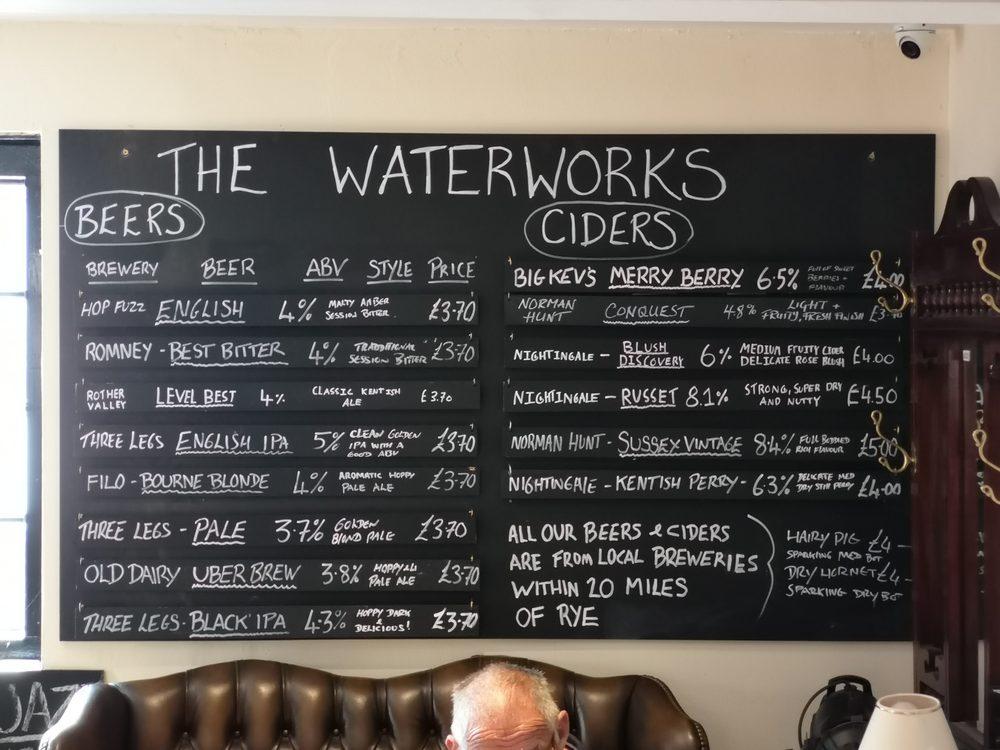 THE WATERWORKS
BEERS
BREWERY BEER ABV STYLE PRICE
HOP FUZZ ENGLISH 4% MALTY AMBER SESSION BITTER £3.70
ROMNEY - BEST BITTER 4% TRADITIONAL SESSION BITTER £3.70
ROTHER VALLEY LEVEL BEST 4% CLASSIC KENTISH ALE £3.70
THREE LEGS ENGLISH IPA 5% CLEAN GOLDEN IPA WITH A GOOD ABV £3.70
FILO - BOURNE BLONDE 4% AROMATIC HOPPY PALE ALE £3.70
THREE LEGS - PALE 3.7% GOLDEN BLOND PALE £3.70
OLD DAIRY UBER BREW 3.8% HOPPY PALE ALE £3.70
THREE LEGS. BLACK IPA 4.3% HOPPY DARK & DELICIOUS! £3.70
CIDERS
BIG KEV'S MERRY BERRY 6.5% FULL OF SWEET BERRIES - FLAVOUR
NORMAN HUNT CONQUEST 4.8% LIGHT + FRUITY, FRESH FINISH
NIGHTINGALE - BLUSH DISCOVERY 6% MEDIUM FRUITY CIDER DELICATE ROSE BLUSH £4.00
NIGHTINGALE - RUSSET 8.1% STRONG, SUPER DRY AND NUTTY £4.50
NORMAN HUNT - SUSSEX VINTAGE 8.4% FULL BODIED RICH FLAVOUR £5.00
NIGHTINGALE - KENTISH PERRY - 6.3% DELICATE MED DRY STILL PERRY £4.00
ALL OUR BEERS & CIDERS
ARE FROM LOCAL BREWERIES
WITHIN 20 MILES
OF RYE
HAIRY PIG £4 -
SPARKING MED BOT
DRY HORNET £4 -
SPARKING DRY BOT
JAZZ